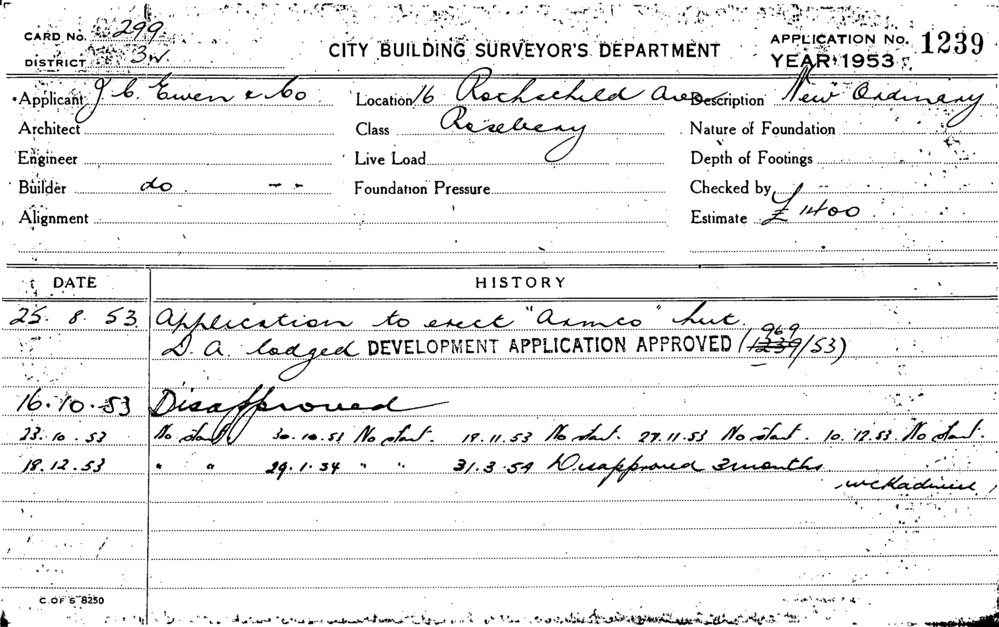 CARD No. 299
DISTRICT 3W
CITY BUILDING SURVEYOR'S DEPARTMENT
APPLICATION No. 1239
YEAR 1953
Applicant J. C. Ewen & Co Location 16 Rothschild Ave Description New Ordinary
Architect Class Rosebery Nature of Foundation
Engineer Live Load Depth of Footings
Builder do -- Foundation Pressure Checked by
Alignment Estimate £1400
DATE HISTORY
25. 8. 53 Application to erect "Armco" hut.
D. A. lodged DEVELOPMENT APPLICATION APPROVED (1239 969/53)
16.10.53 Disapproved
23.10.53 No start. 30.10.53 No start. 18.11.53 No start. 27.11.53 No start. 10.12.53. No start.
18.12.53 " " 29.1.54 " " 31.3.54 Disapproved 3 months
C. OF S 8250